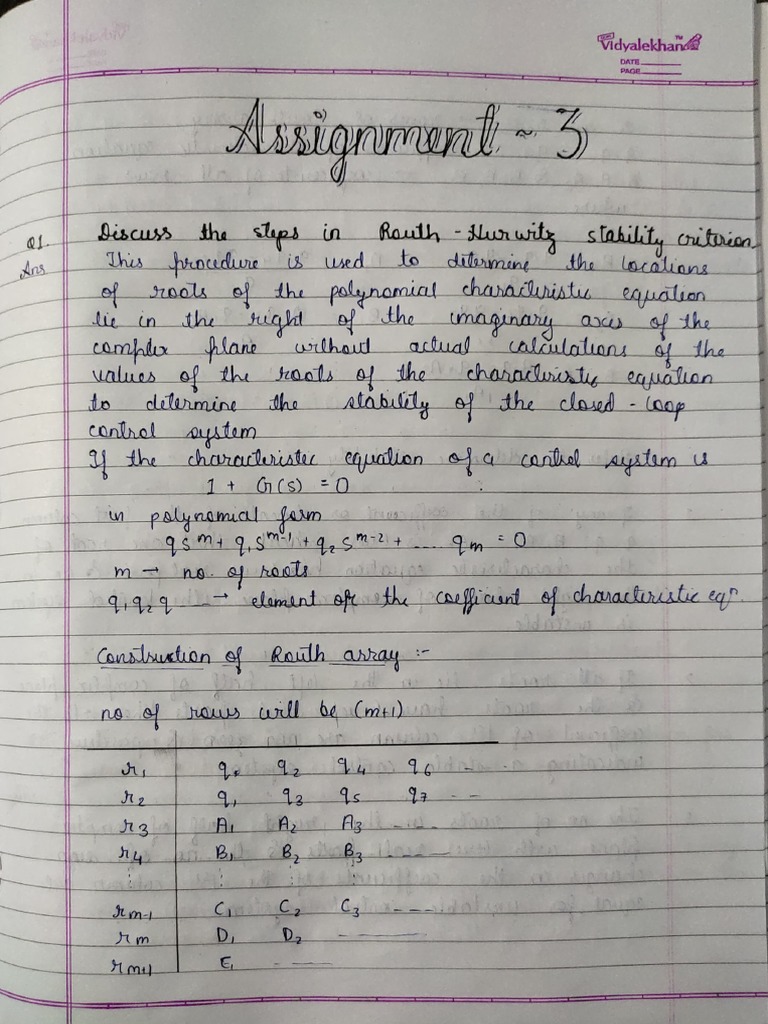 Vidyalekhan
DATE
PAGE
Assignment - 3
Q1. Discuss the steps in Routh - Hurwitz stability criterion
Ans This procedure is used to determine the locations
of roots of the polynomial characteristic equation
lie in the right of the imaginary axis of the
complex plane without actual calculations of the
values of the roots of the characteristic equation
to determine the stability of the closed - loop
control system
If the characteristic equation of a control system is
1 + G(s) = 0
in polynomial form
qs^m + q₁s^m-1 + q₂s^m-2 + .... qm = 0
m → no. of roots
q₁q₂q ---→ element of the coefficient of characteristic eqn.
Construction of Routh array :-
no of rows will be (m+1)
r₁ q₀ q₂ q₄ q₆ - -
r₂ q₁ q₃ q₅ q₇ - -
r₃ A₁ A₂ A₃ - - - -
r₄ B₁ B₂ B₃ - - - -
⋮ ⋮ ⋮ ⋮
rm-1 C₁ C₂ C₃ - - - -
rm D₁ D₂ - - - -
rm+1 E₁ - - - -